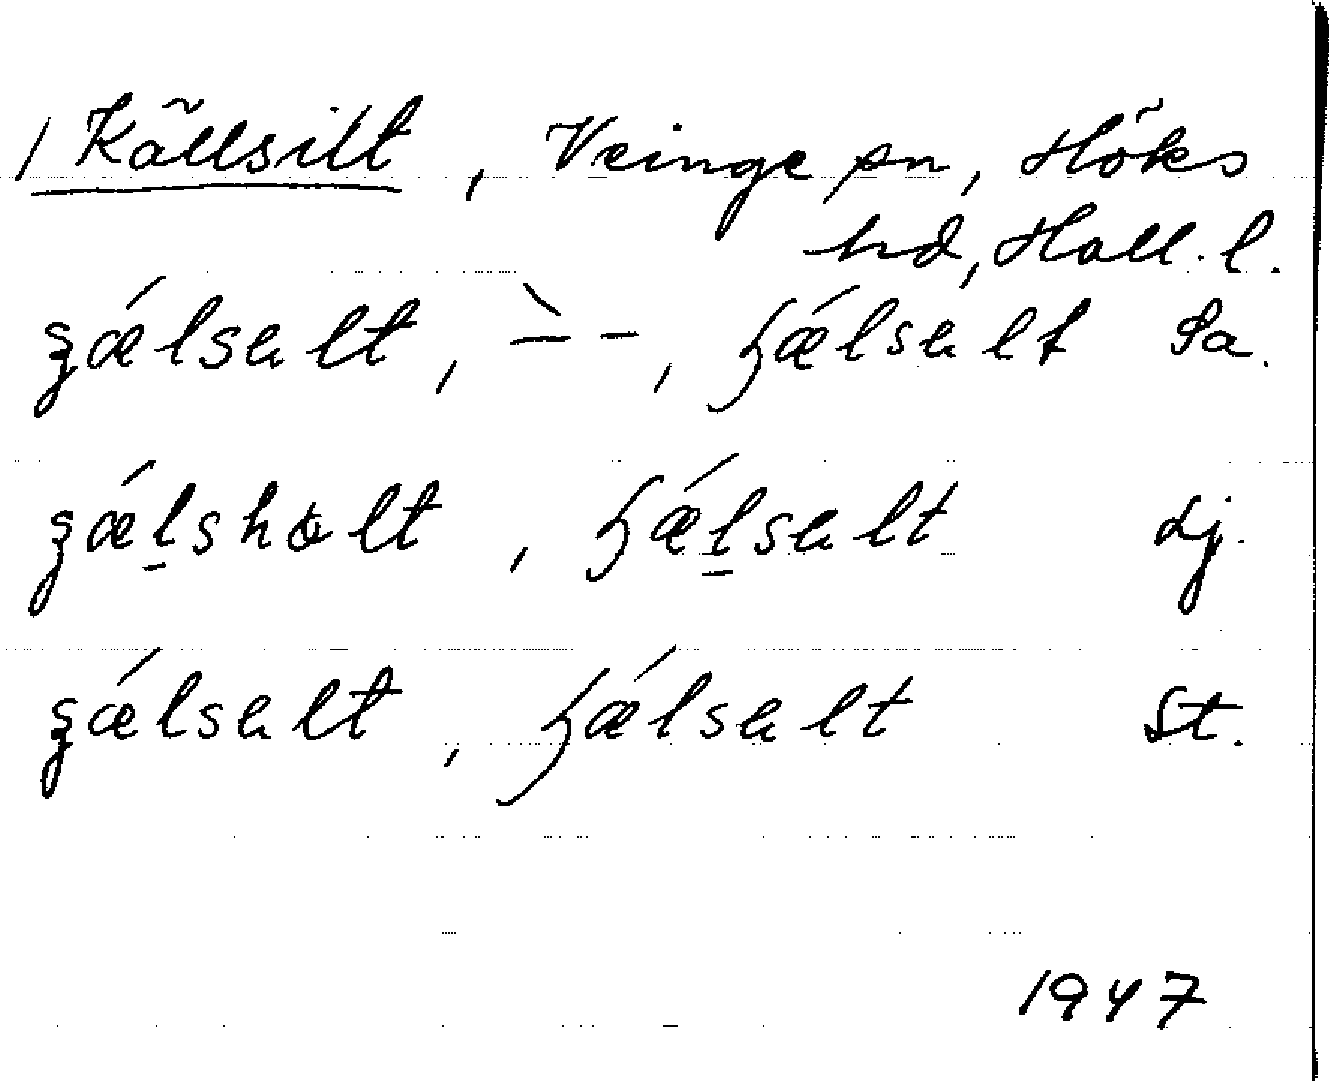 / Källsilt, Veinge sn, Höks
hd, Hall. l.
ʒǽlsalt, –̀ –, ɧǽlsalt Sa.
ʒǽl̠shɷlt, ɧǽl̠salt Lj.
ʒǽlsalt, ɧǽlsalt St.
1947